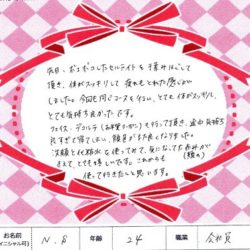 先日、ボコボコしたセルライトを揉みほぐして
頂き、体がスッキリして疲れもとれた感じが
しました。今回も同じコースを行い、とても体がスッキリ、
とても気持ち良かったです。
フェイス、デコルテ(お年頃の)も行って頂き、血の気持ち
良すぎて寝てしまい、顔色がまた良くなりました。
洗顔と化粧水を使ってみて、気になってた赤みが
きえて、とても嬉しいです。これからも (頬の)
使って行きたいと思います。
お名前 N.A 年齢 24 職業 会社員
(イニシャル可)